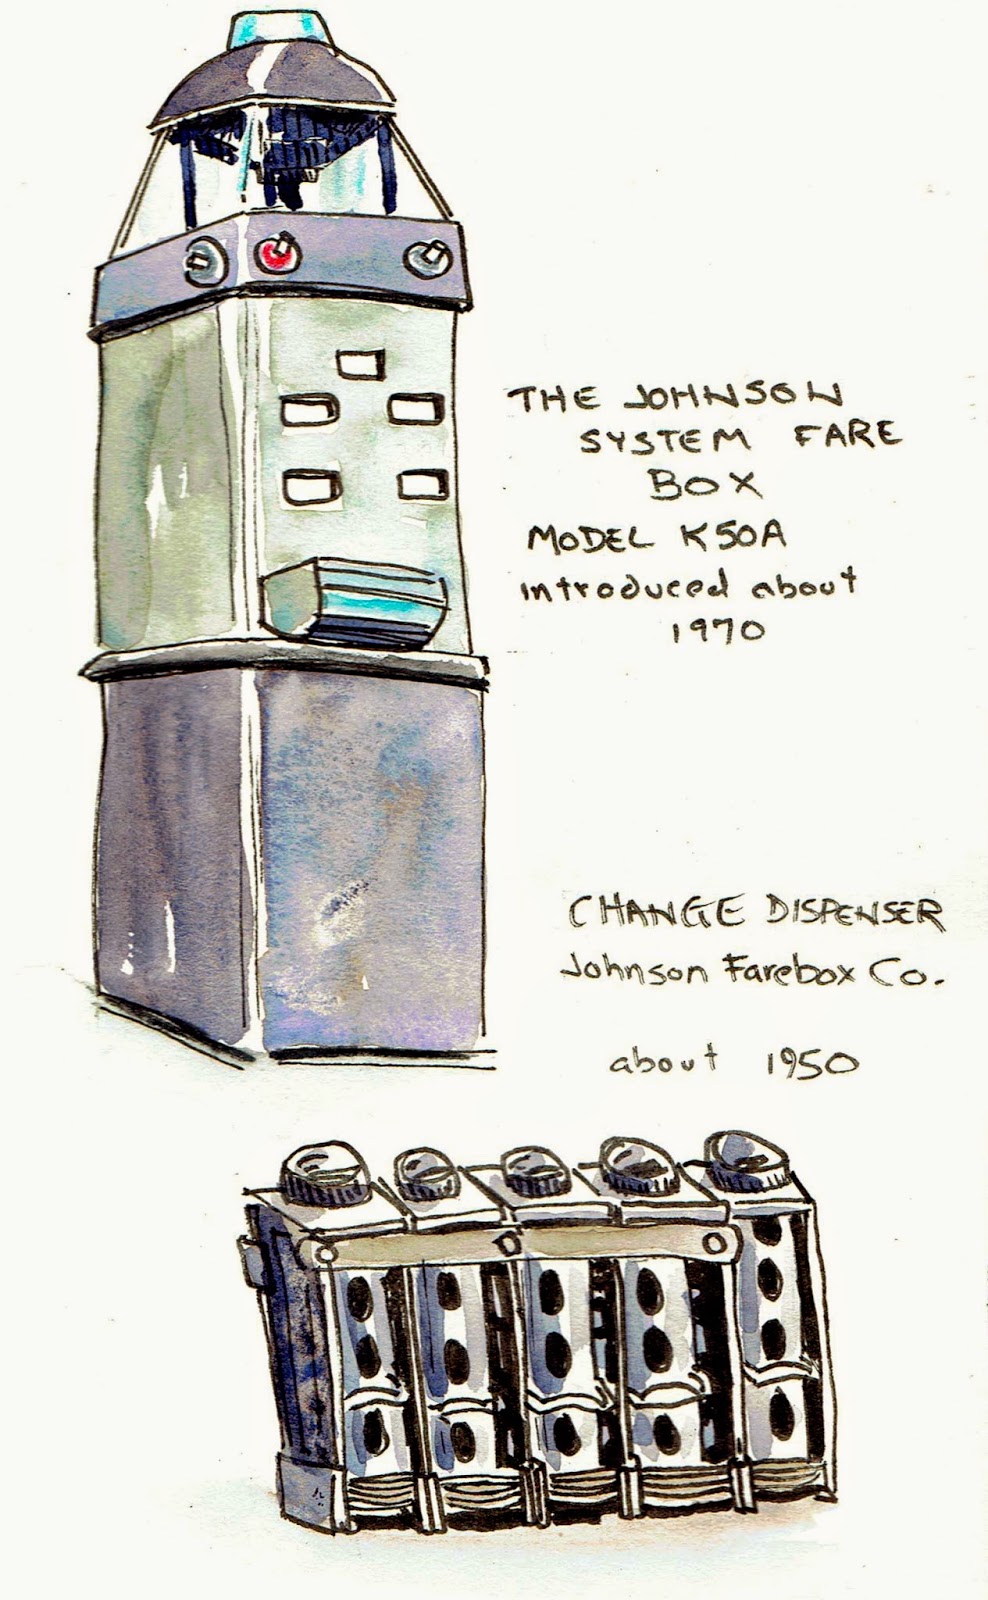 THE JOHNSON
SYSTEM FARE
BOX
MODEL K50A
introduced about
1970
CHANGE DISPENSER
Johnson Farebox Co.
about 1950